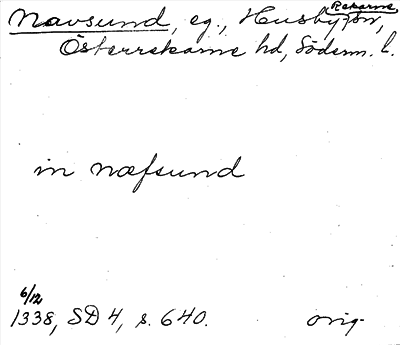 Navsund, eg., Husby-Rekarne sn,
Österrekarne hd, Söderm. l.
in næfsund
6/12
1338, SD 4, s. 640. orig.